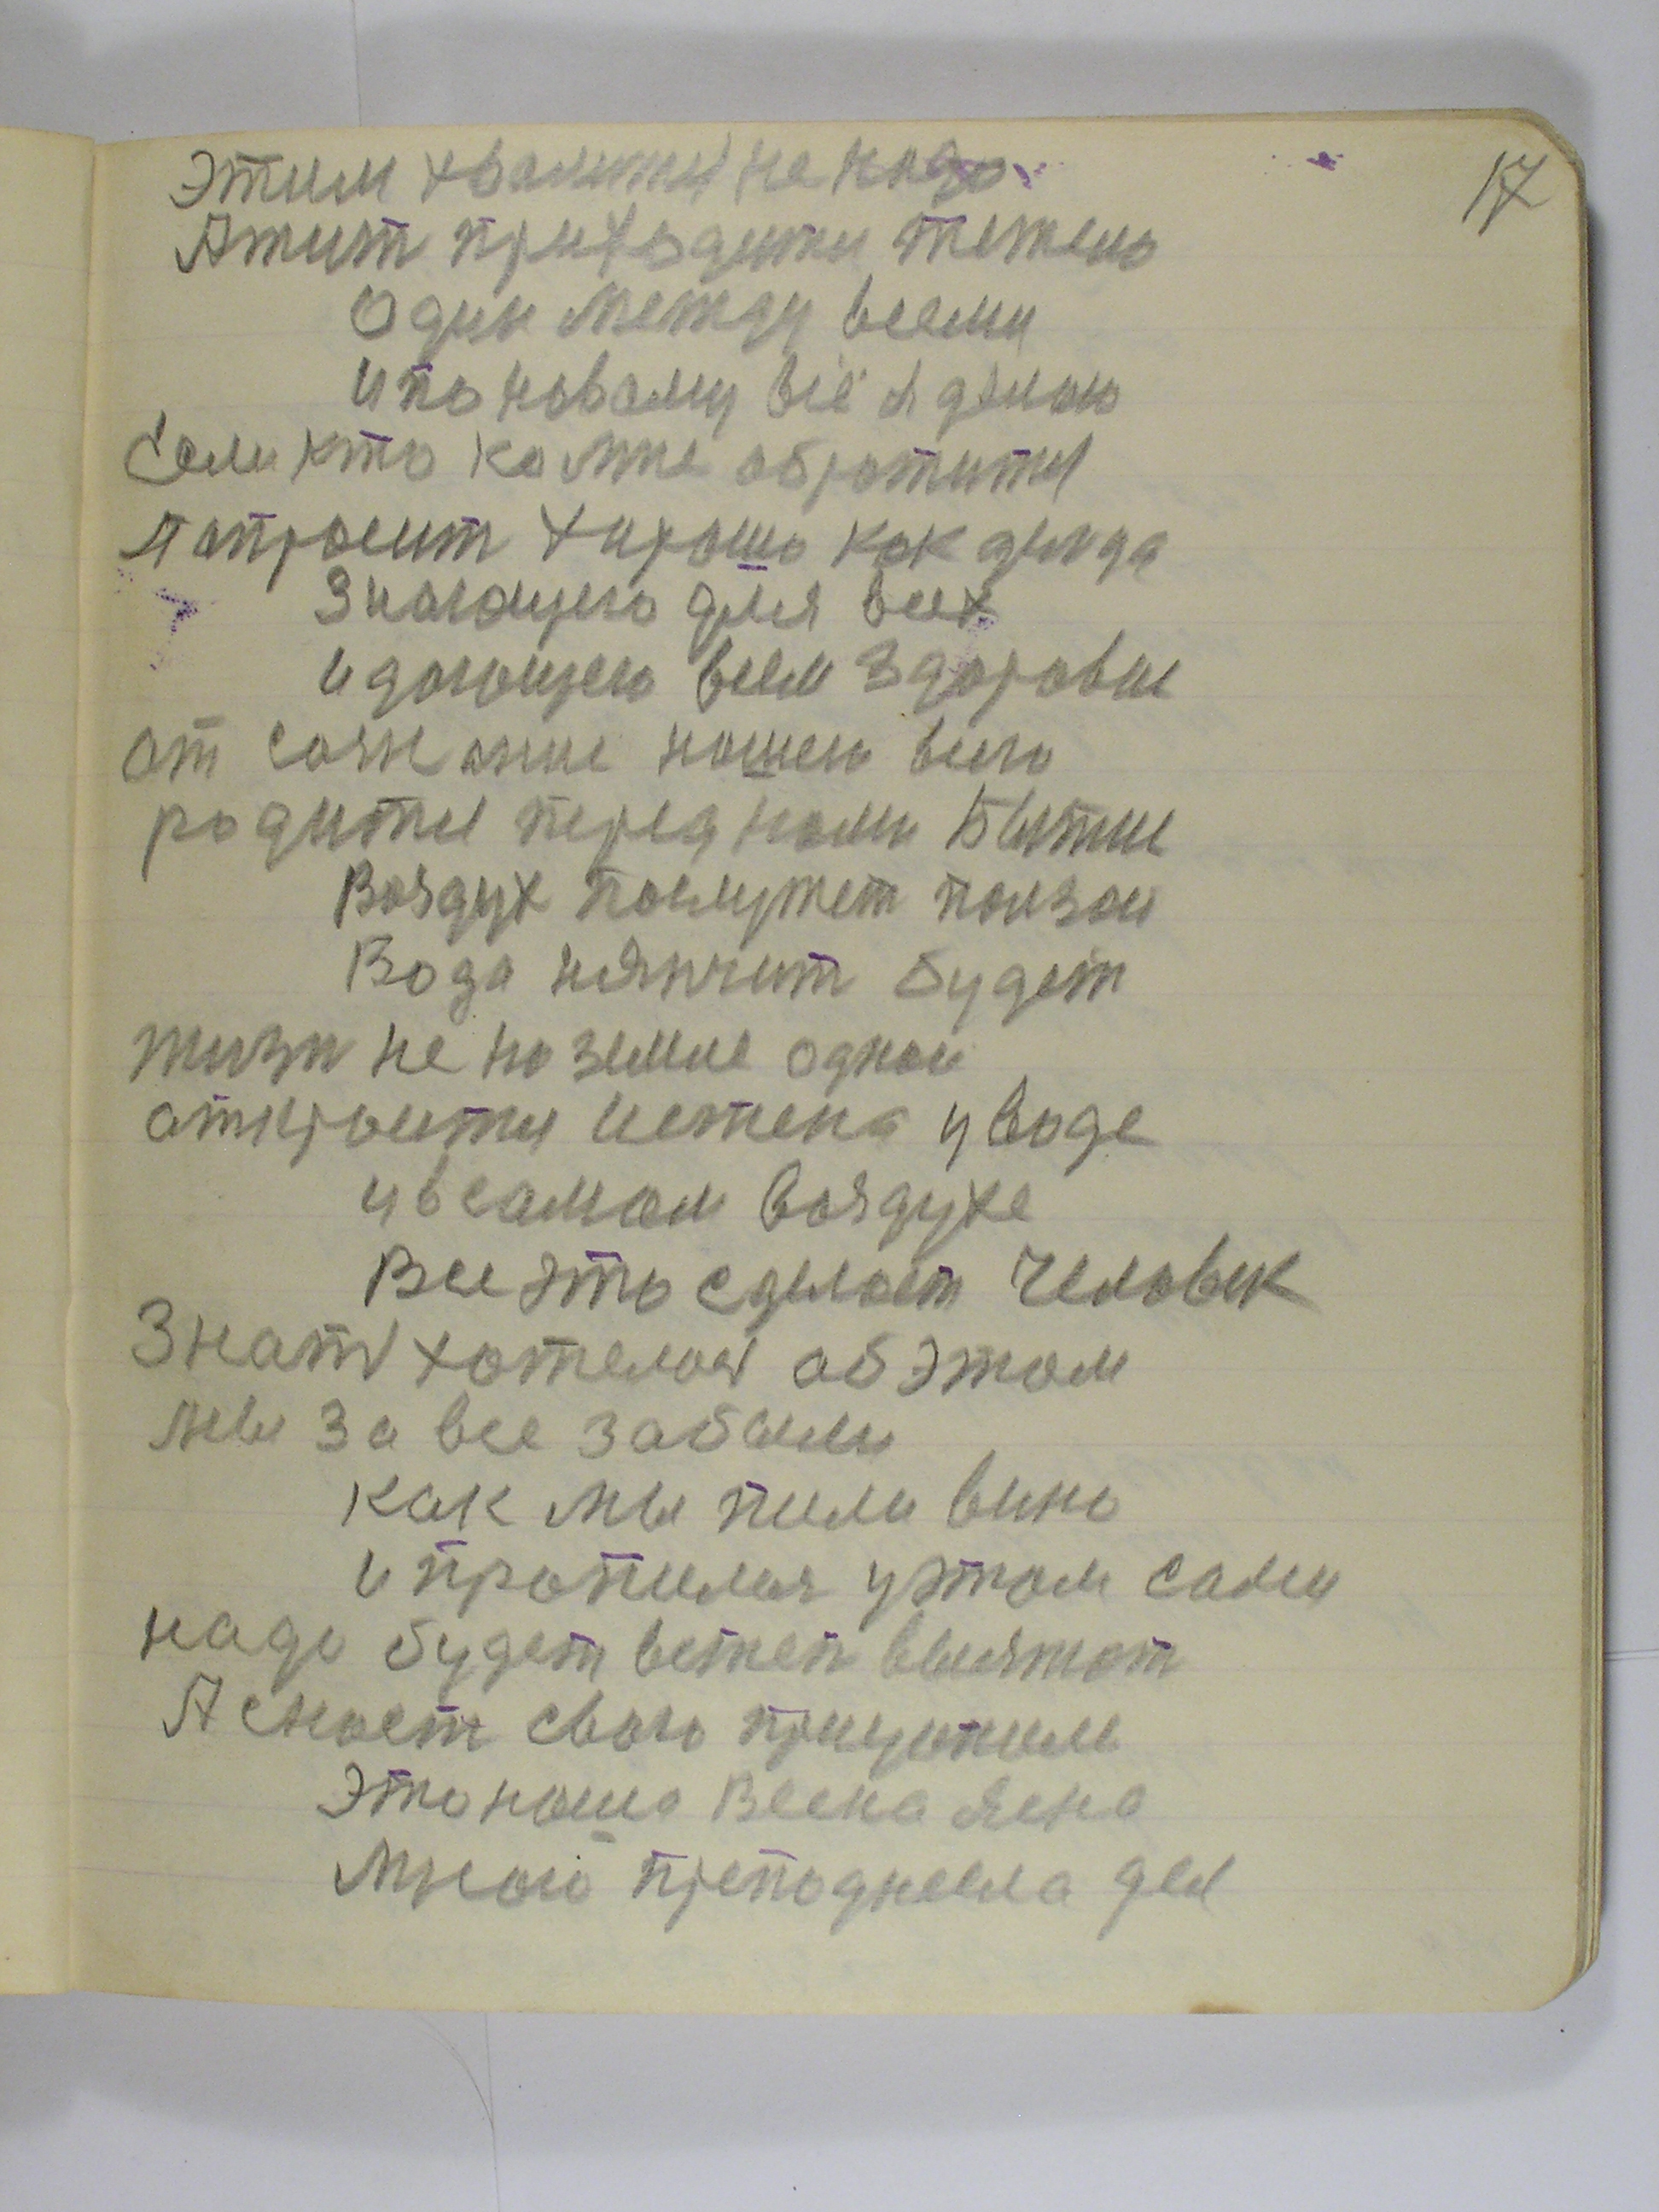 17
Этим хвалится не надо
Ажит приходится тежело
Один между всеми
и по новаму всё я делаю
Если кто ко мне обротится
Попросит хирошо как деида
Знающего для всех
и дающего всем здоровие
от сазнание нашего всего
родится перед нами Бытие
Воздух послужет ползои
Вода нянчит будет
жизн не на земле однои
откроится истена у воде
и в самом воздухе
Все это сделает Человек
Знат хотелося об этом
мы за все забыли
как мы пили вино
и пропилися у этом сами
надо будет встеп
А снает свого прицепим
Это наша Весна ясна
Много преподнесла дел